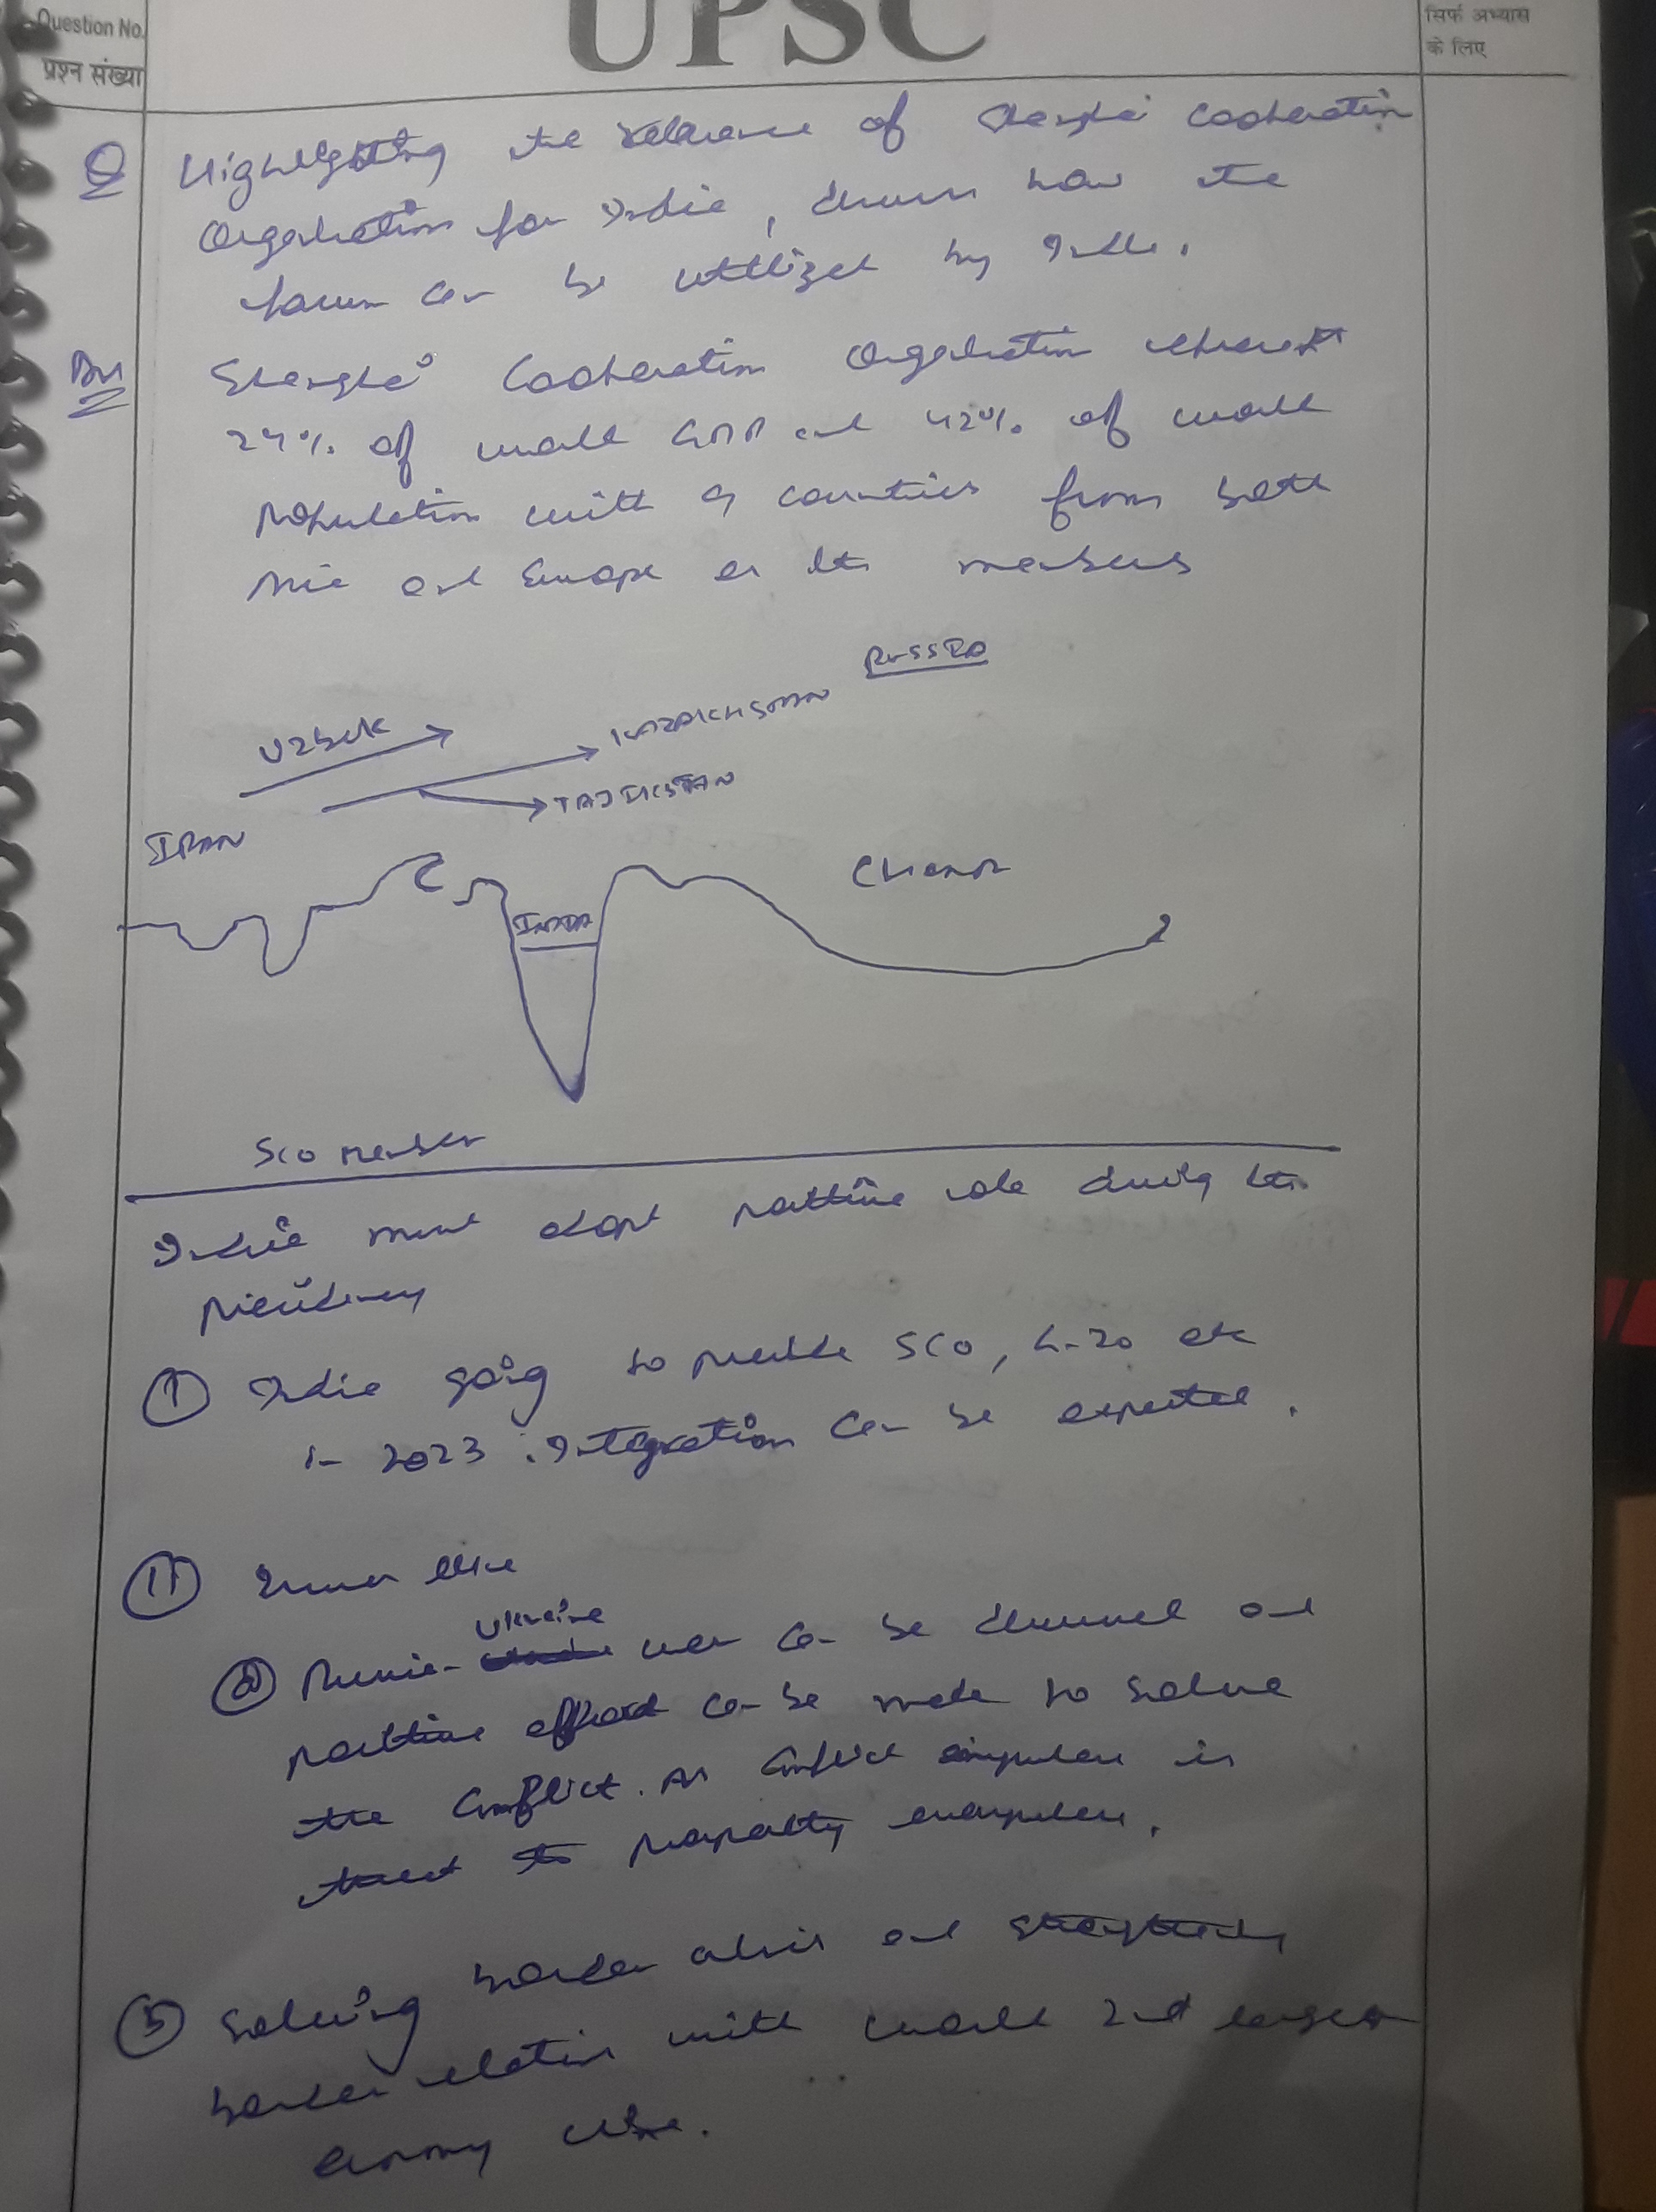 Question No.
प्रश्न संख्या
UPSC
सिर्फ अभ्यास
के लिए
Q Highlighting the relevance of Shanghai Cooperation
Organisation for India, discuss how the
forum can be utilized by India.
Ans Shanghai Cooperation Organisation represents
24% of world GDP and 42% of world
population with 9 countries from both
Asia and Europe as its members
RUSSIA
UZBEK
KAZAKHSTAN
TAJIKISTAN
IRAN
CHINA
INDIA
SCO Member
India must adopt positive role during its
presidency
① India going to preside SCO, G-20 etc
in 2023 . Integration can be expected.
② Issues like
Ukraine
ⓐ Russia- war can be discussed and
positive efford can be made to solve
the conflict. As conflict anywhere is
threat to prosperity everywhere.
ⓑ Solving border and
border relation with world 2nd largest
army